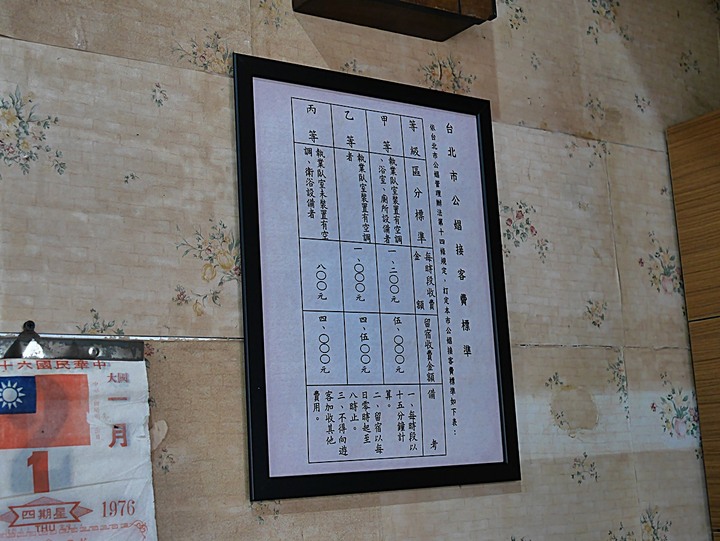 台北市公娼接客費標準
依台北市公娼管理辦法第十四條規定、訂定本市公娼接客費標準如下表：
等級區分標準
每時段收費金額
留宿收費金額
備考
甲等
執業臥室裝置有空調、浴室、廁所設備者
一、二〇〇元
五、〇〇〇元
乙等
執業臥室裝置有空調者
一、〇〇〇元
四、五〇〇元
丙等
執業臥室未裝置有空調、衛浴設備者
八〇〇元
四、〇〇〇元
一、每時段以
十五分鐘計
算。
二、留宿以每
日零時起至
八時止。
三、不得向遊
客加收其他
費用。
中華民國六十
大國
一月
1
星期四
THU
1976